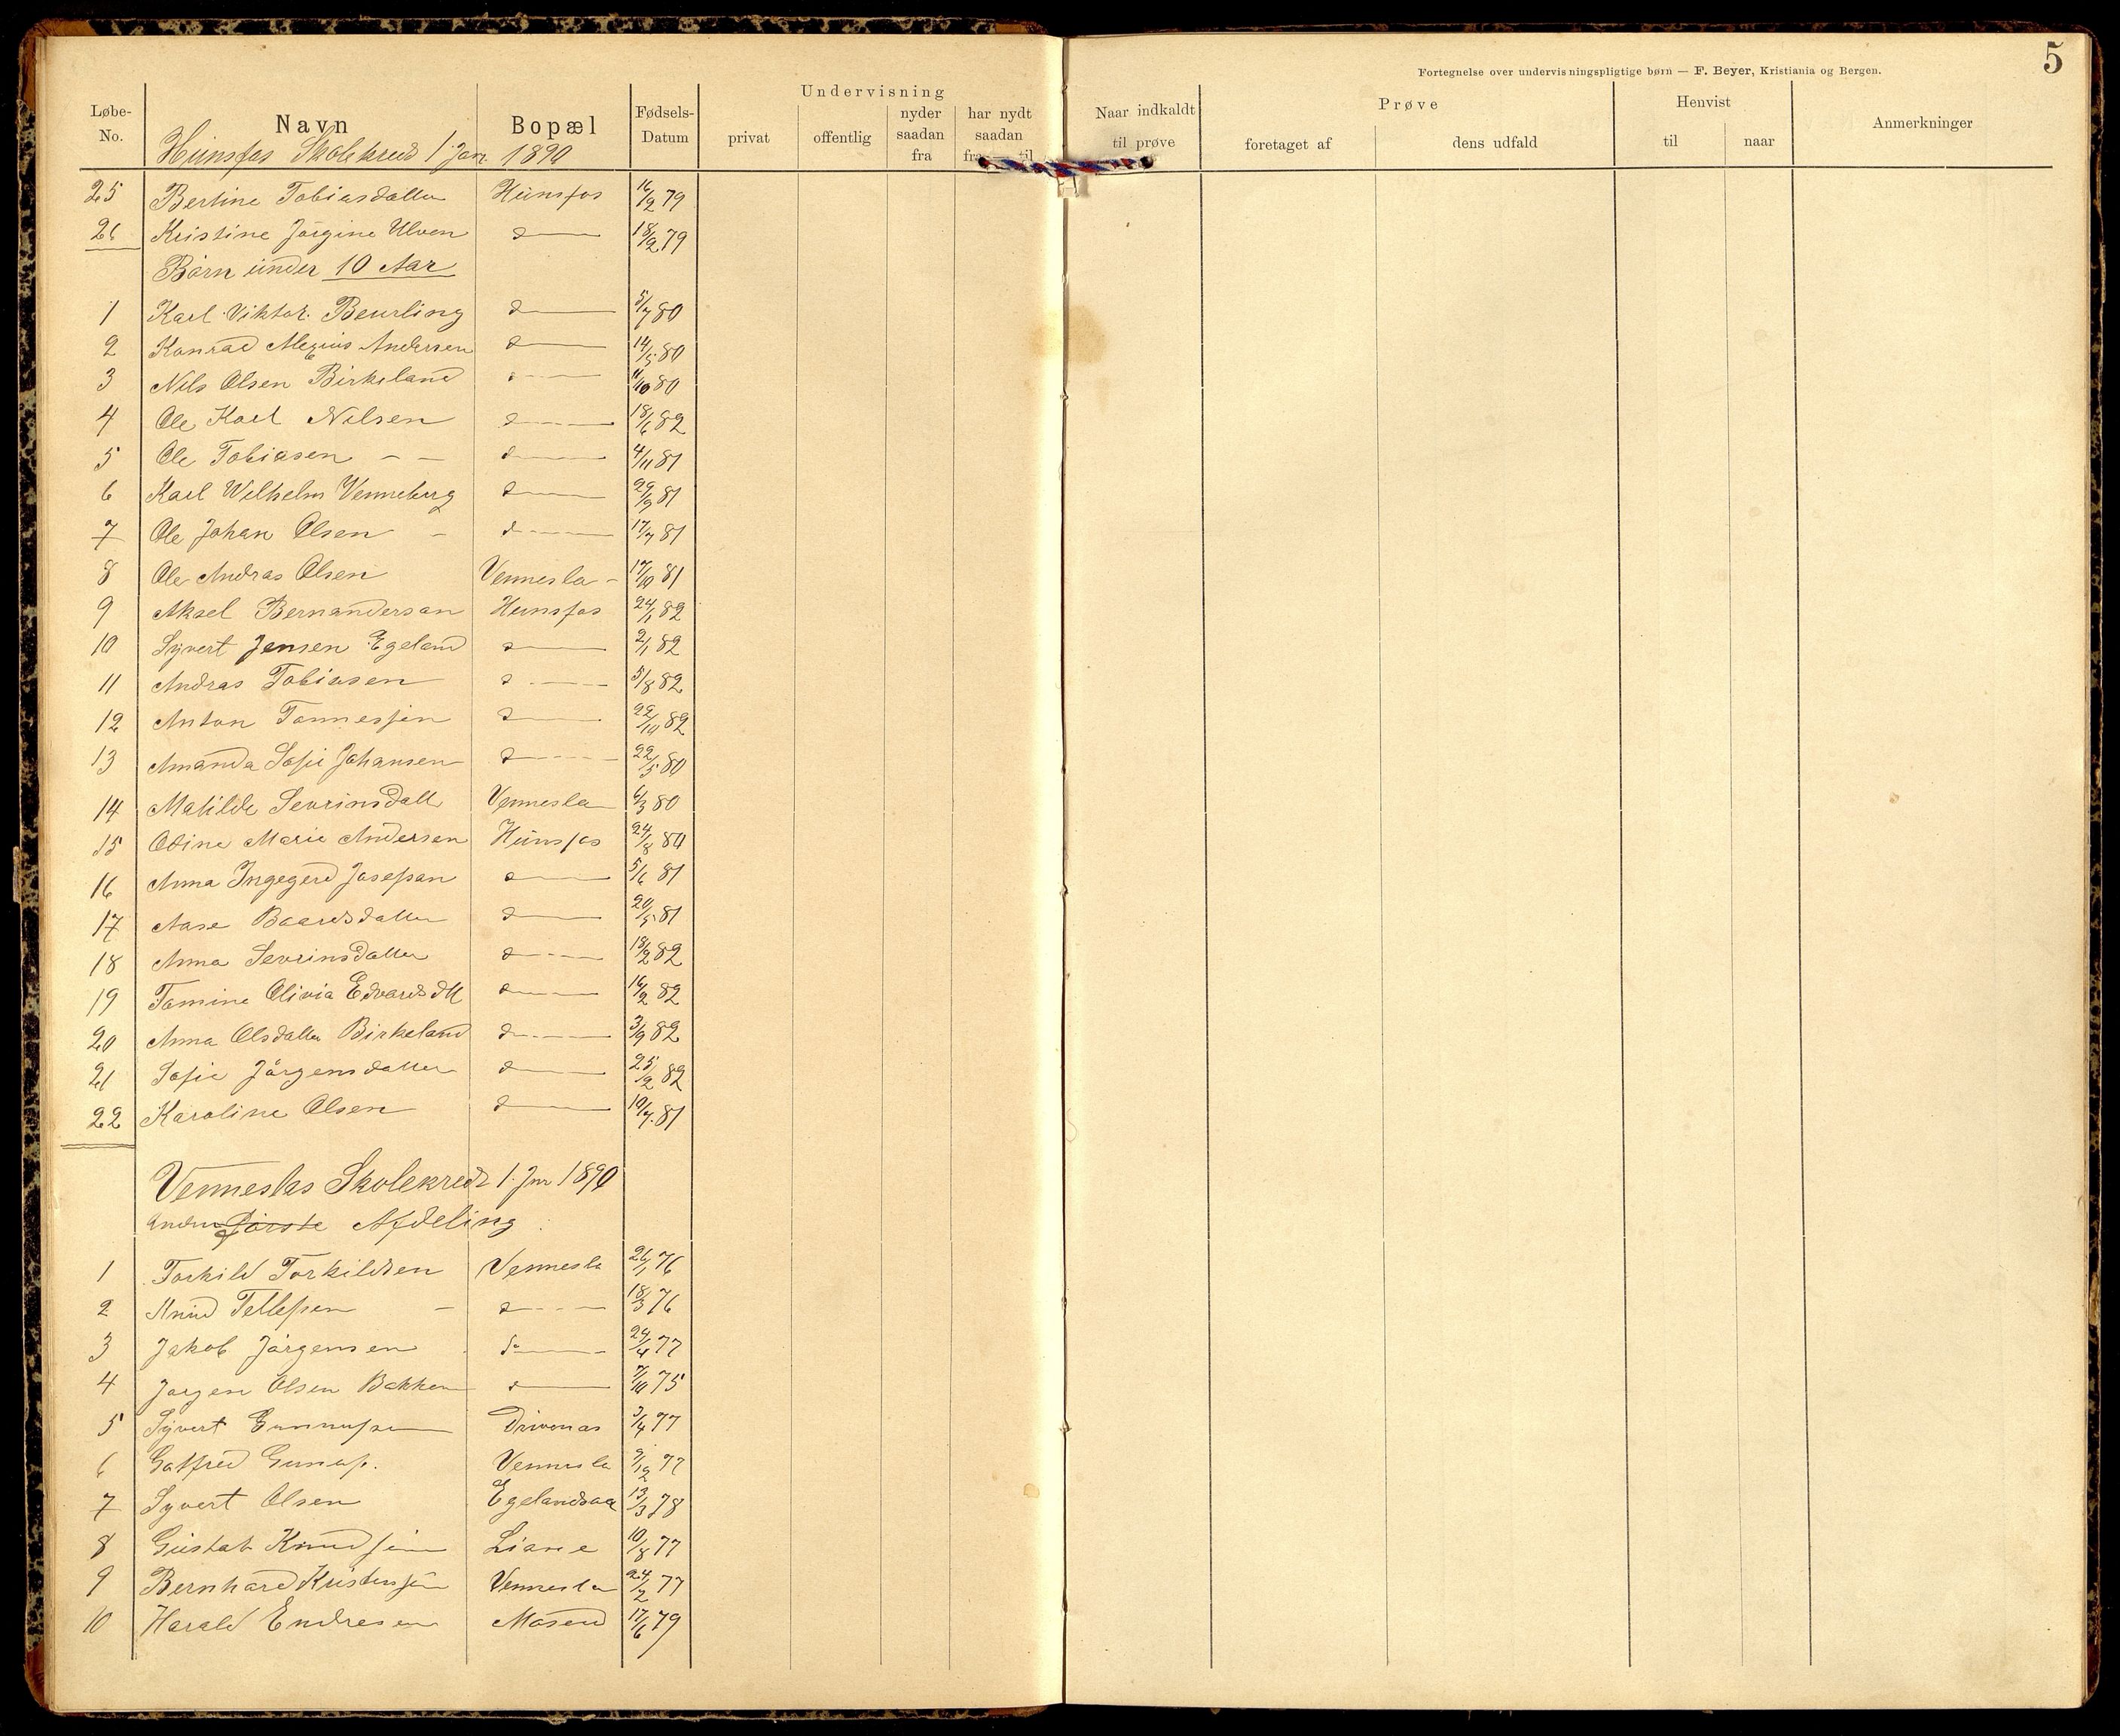 5
Fortegnelse over undervisningspligtige børn — F. Beyer, Kristiania og Bergen.
Løbe-No. Navn Bopæl Fødsels-Datum Undervisning privat offentlig nyder saadan fra har nydt saadan fra til Naar indkaldt til prøve Prøve foretaget af dens udfald Henvist til naar Anmerkninger
Hunsfos Skolekreds 1 Jan. 1890
25 Bertine Tobiasdatter Hunsfos 16/2 79
26 Kristine Jørgine Ulven d 18/2 79
Børn under 10 Aar
1 Karl Viktor Beurling d 5/7 80
2 Konrad Andersen d 14/5 80
3 Nils Olsen Birkeland 11/10 80
4 Ole Karl Nilsen d 18/6 82
5 Ole Tobiasen d 4/11 81
6 Karl Wilhelm Venneberg d 29/9 81
7 Ole Johan Olsen d 17/7 81
8 Ole Andras Olsen Vennesla 17/10 81
9 Aksel Bernanderson Hunsfos 24/1 82
10 Syvert Jensen Egeland d 2/1 82
11 Andras Tobiasen d 5/8 82
12 Anton Tønnessen d 22/10 82
13 Amanda Sofie Johansen d 22/5 80
14 Matilde Sevrinsdatt Vennesla 6/3 80
15 Odine Marie Andersen Hunsfos 24/8 80
16 Anna Ingegerd Josefson d 5/6 81
17 Aase Baardsdatter d 20/5 81
18 Anna Sevrinsdatter d 18/2 82
19 Tomine Olivia Edvardsdtt d 16/2 82
20 Anna Olsdatter Birkeland d 3/9 82
21 Sofie Jørgensdatter d 25/2 82
22 Karoline Olsen d 10/7 81
Venneslas Skolekreds 1. Jan 1890
anden Første Afdeling
1 Torkild Torkildsen Vennesla 26/1 76
2 Knud Tellefsen d 18/3 76
3 Jakob Jørgensen do 24/4 77
4 Jørgen Olsen Bakken d 7/10 75
5 Syvert Gunnufsen Drivenas 3/4 77
6 Gotfred Gunufs. Vennesla 9/12 77
7 Syvert Olsen Egelandsaa 13/3 78
8 Gustab Knudsen Liane 10/8 77
9 Bernhard Kristensen Vennesla 24/2 77
10 Harald Endresen Moseid 17/6 79